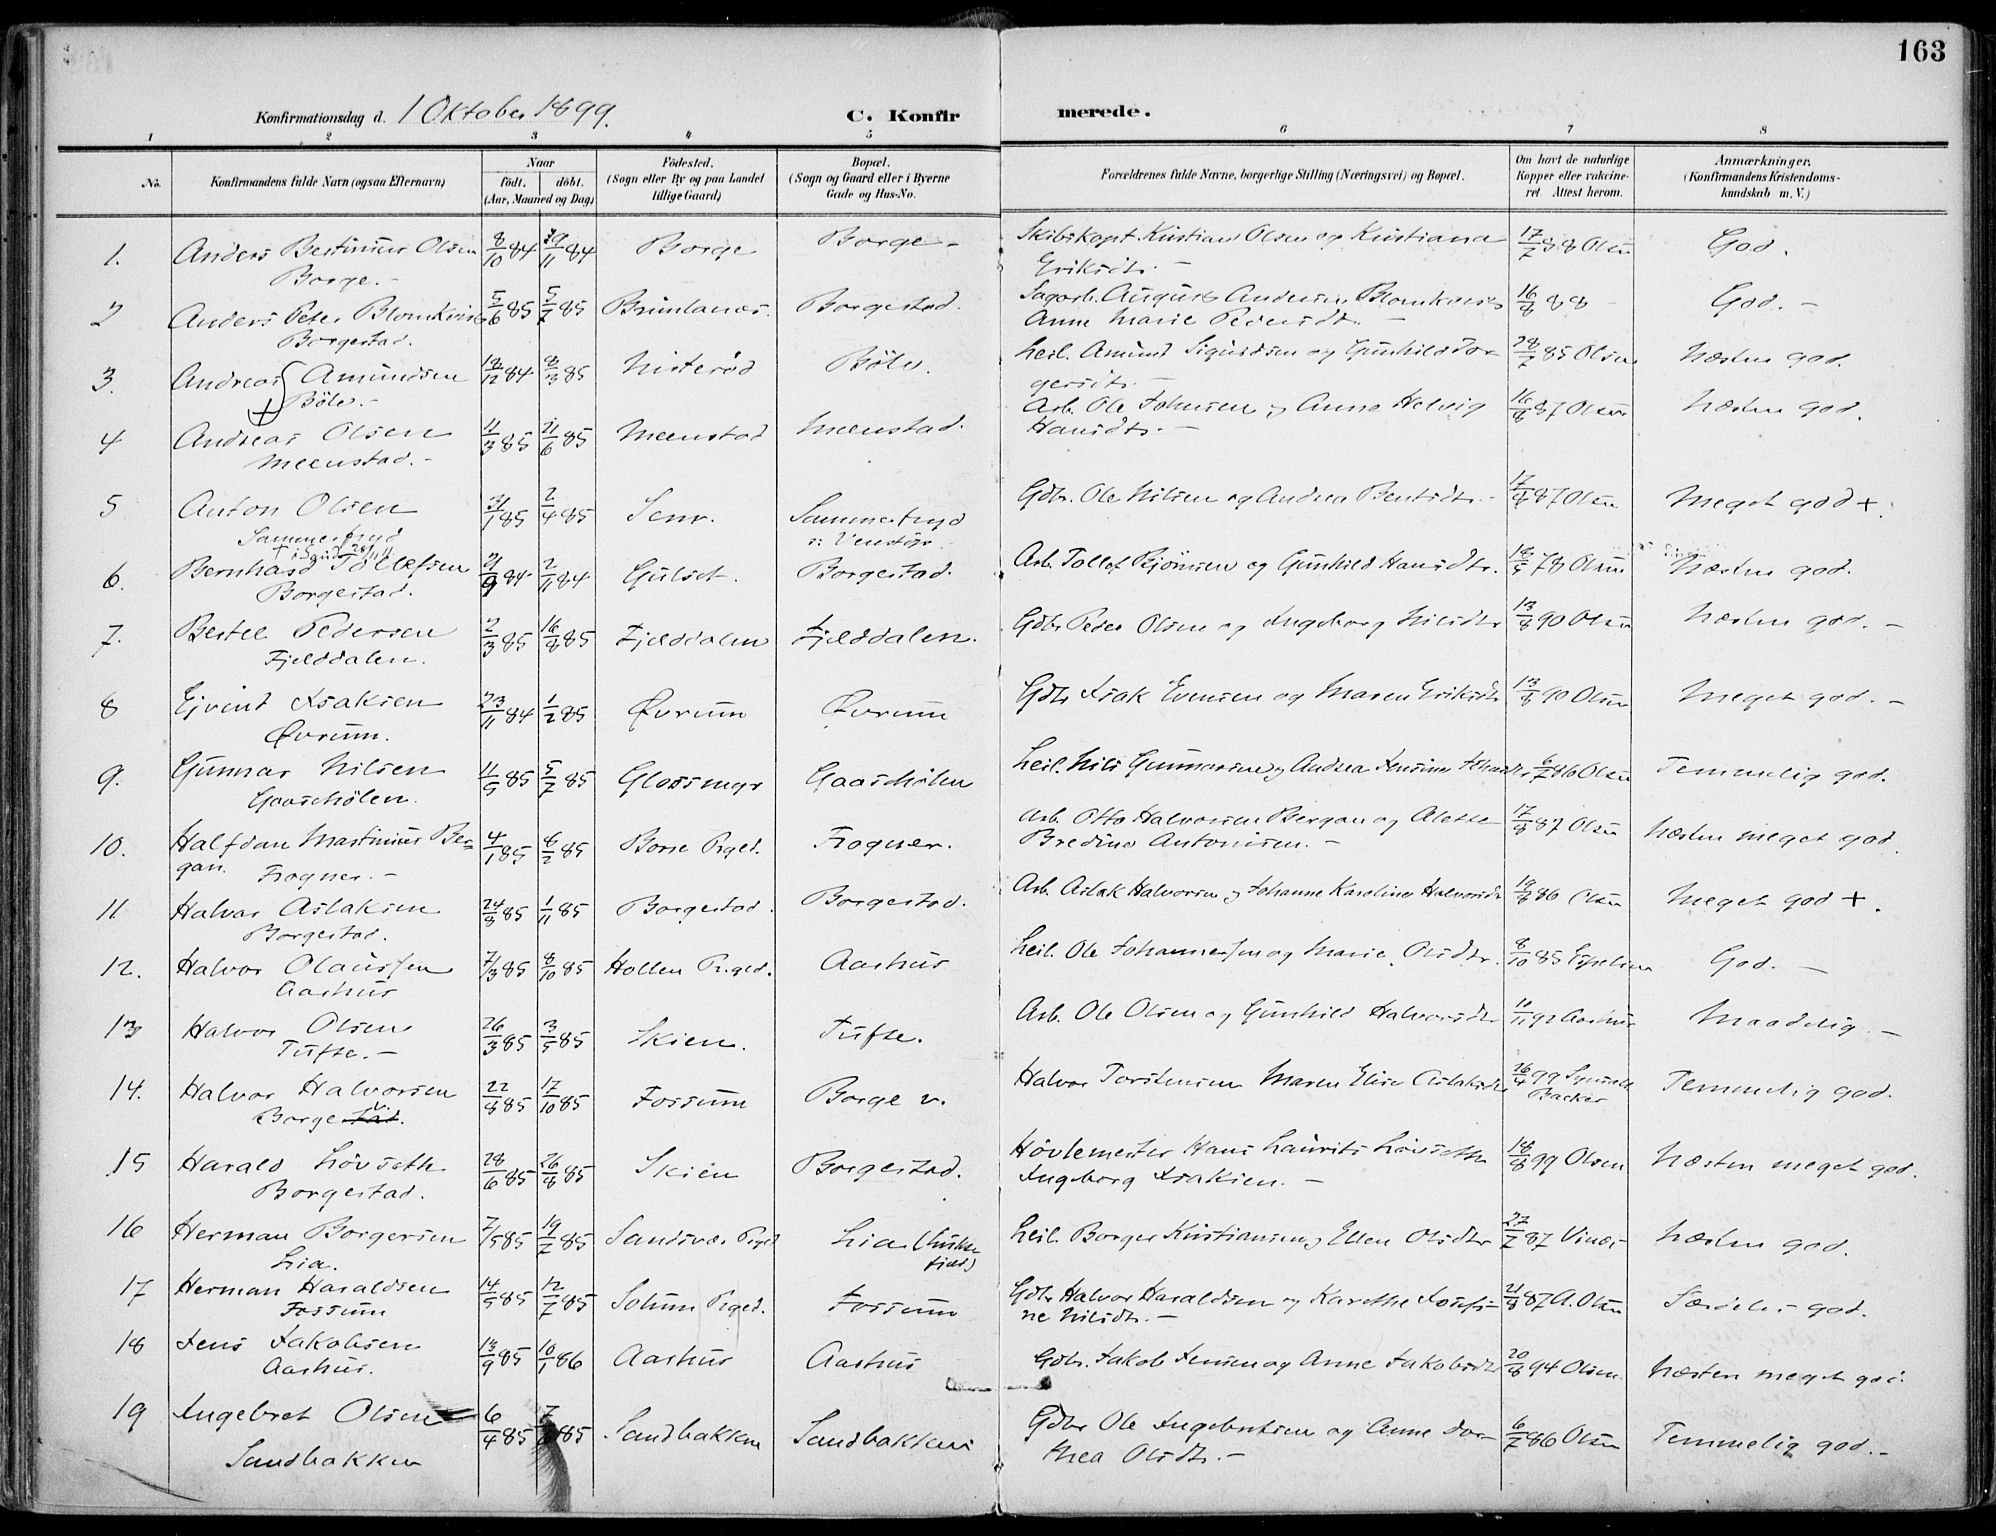 163
Konfirmationsdag d. 1 Oktober 1899.
C. Konfir merede.
1 2 3 4 5 6 7 8
No.
Konfirmandens fulde Navn (ogsaa Efternavn)
Naar
födt. döbt.
(Aar, Maaned og Dag)
Födested.
(Sogn eller By og paa Landet
tillige Gaard)
Bopæl.
(Sogn og Gaard eller i Byerne
Gade og Hus-No.
Forældrenes fulde Navne, borgerlige Stilling (Næringsvei) og Bopæl.
Om havt de naturlige
Kopper eller vakcine-
ret. Attest herom.
Anmærkninger.
(Konfirmandens Kristendoms-
kundskab m. V.)
1. Anders Bertinius Olsen 8/10 84 84 Borge Borge - Skibskapt. Kristian Olsen og Kristiana 17/7 88 Olsen God.
Borge. - Eriksdtr. -
2 Anders Peter 5/6 85 85 Brunlanæs. Borgestad. Sagarb. August Andersen 16/8 88 God. -
Borgestad. Anne Marie Pedersdtr. -
3. Andreas Amundsen 84 8/3 85 Bölv. Leil. Amund Sigurdsen og Gunhild Tor- 28/7 85 Olsen Næsten god.
Bölv. - gersdtr. -
4 Andreas Olsen 11/3 85 21/6 85 Meenstad Meenstad. Arb. Ole Johnsen og Anne Helvig 16/8 87 Olsen Næsten god.
Meenstad. - Hansdtr. -
5 Anton Olsen 31/1 85 2/4 85 Arb. Gdbr. Ole Nilsen og Andrea Bentsdtr. - 17/8 87 Olsen Meget god +.
6. Bernhard Tollefsen 21/9 84 2/11 84 Gulset. Borgestad. Arb. Tollef Bjönsen og Gunhild Hansdtr. 78 Olsen Næsten god.
Borgestad.
7. Bertel Pedersen 2/3 85 16/8 85 Fjelddalen Fjelddalen. Gdbr. Peder Olsen og Ingeborg Nilsdtr 13/8 90 Olsen Næsten god. -
Fjelddalen.
8 Ejvind Isaksen 23/11 84 1/2 85 Øvrum Øvrum Gdbr Isak Evensen og Maren Eriksdtr 13/8 90 Olsen Meget god. -
Øvrum.
9. Gunnar Nilsen 11/5 85 5/7 85 Glossmyr Gaasehölen Leil. Nils Gunnarsen og Andrea 6/7 86 Olsen Temmelig god.
Gaasehölen.
10. Halfdan Martinius Ber= 4/1 85 8/2 85 Borre Prgd. Frogner. Arb. Otto Halvorsen Bergan og Alette 17/8 87 Olsen Næsten meget god.
gan. Frogner. - Bredine Antonisen. -
11 Halvor Aslaksen 24/8 85 1/11 85 Borgestad. Borgestad. Arb. Aslak Halvorsen og Johanne Karoline Halvorsdtr 19/8 86 Olsen Meget god +.
Borgestad.
12. Halvor Olaussen 7/3 85 8/10 85 Hollen Prgd. Aarhus Leil. Ole Johannessen og Marie Olsdtr. 8/10 85 God. -
Aarhus
13 Halvor Olsen 26/3 85 3/5 85 Skien. Tufte. Arb. Ole Olsen og Gunhild Halvorsdtr 92 Aarhus Maadelig. -
Tufte. -
14. Halvor Halvorsen 22/8 85 17/10 85 Fossum Borge v. Halvor Torstensen Maren Elise Aslaksdtr 26/4 99 Temmelig god.
Borge v. Backer
15 Harald Lövseth 28/6 85 26/8 85 Skien Borgestad. Hövlemester Hans Laurits Lövseth 18/8 99 Olsen Næsten meget god.
Borgestad. Ingeborg Isaksen. -
16 Herman Borgersen 7/5 85 19/7 85 Sandsvær Prgd Lia Leil. Borger Kristiansen og Ellen Olsdtr 27/7 87 Næsten god.
Lia.
17 Herman Haraldsen 14/5 85 12/7 85 Solum Prgd. Fossum Gdbr. Halvor Haraldsen og Karethe Josefi- 21/8 87 A. Olsen Særdeles god.
Fossum ne Nilsdtr. -
18 Jens Jakobsen 13/9 85 10/1 86 Aarhus Aarhus Gdbr. Jakob Jensen og Anne Jakobsdtr 20/8 94 Olsen. Næsten meget god.
Aarhus.
19 Ingebret Olsen 6/4 85 85 Sandbakken Sandbakken Gdbr Ole Ingebretsen og Anne Dor- 6/7 86 Olsen Temmelig god. -
Sandbakken thea Olsdtr. -